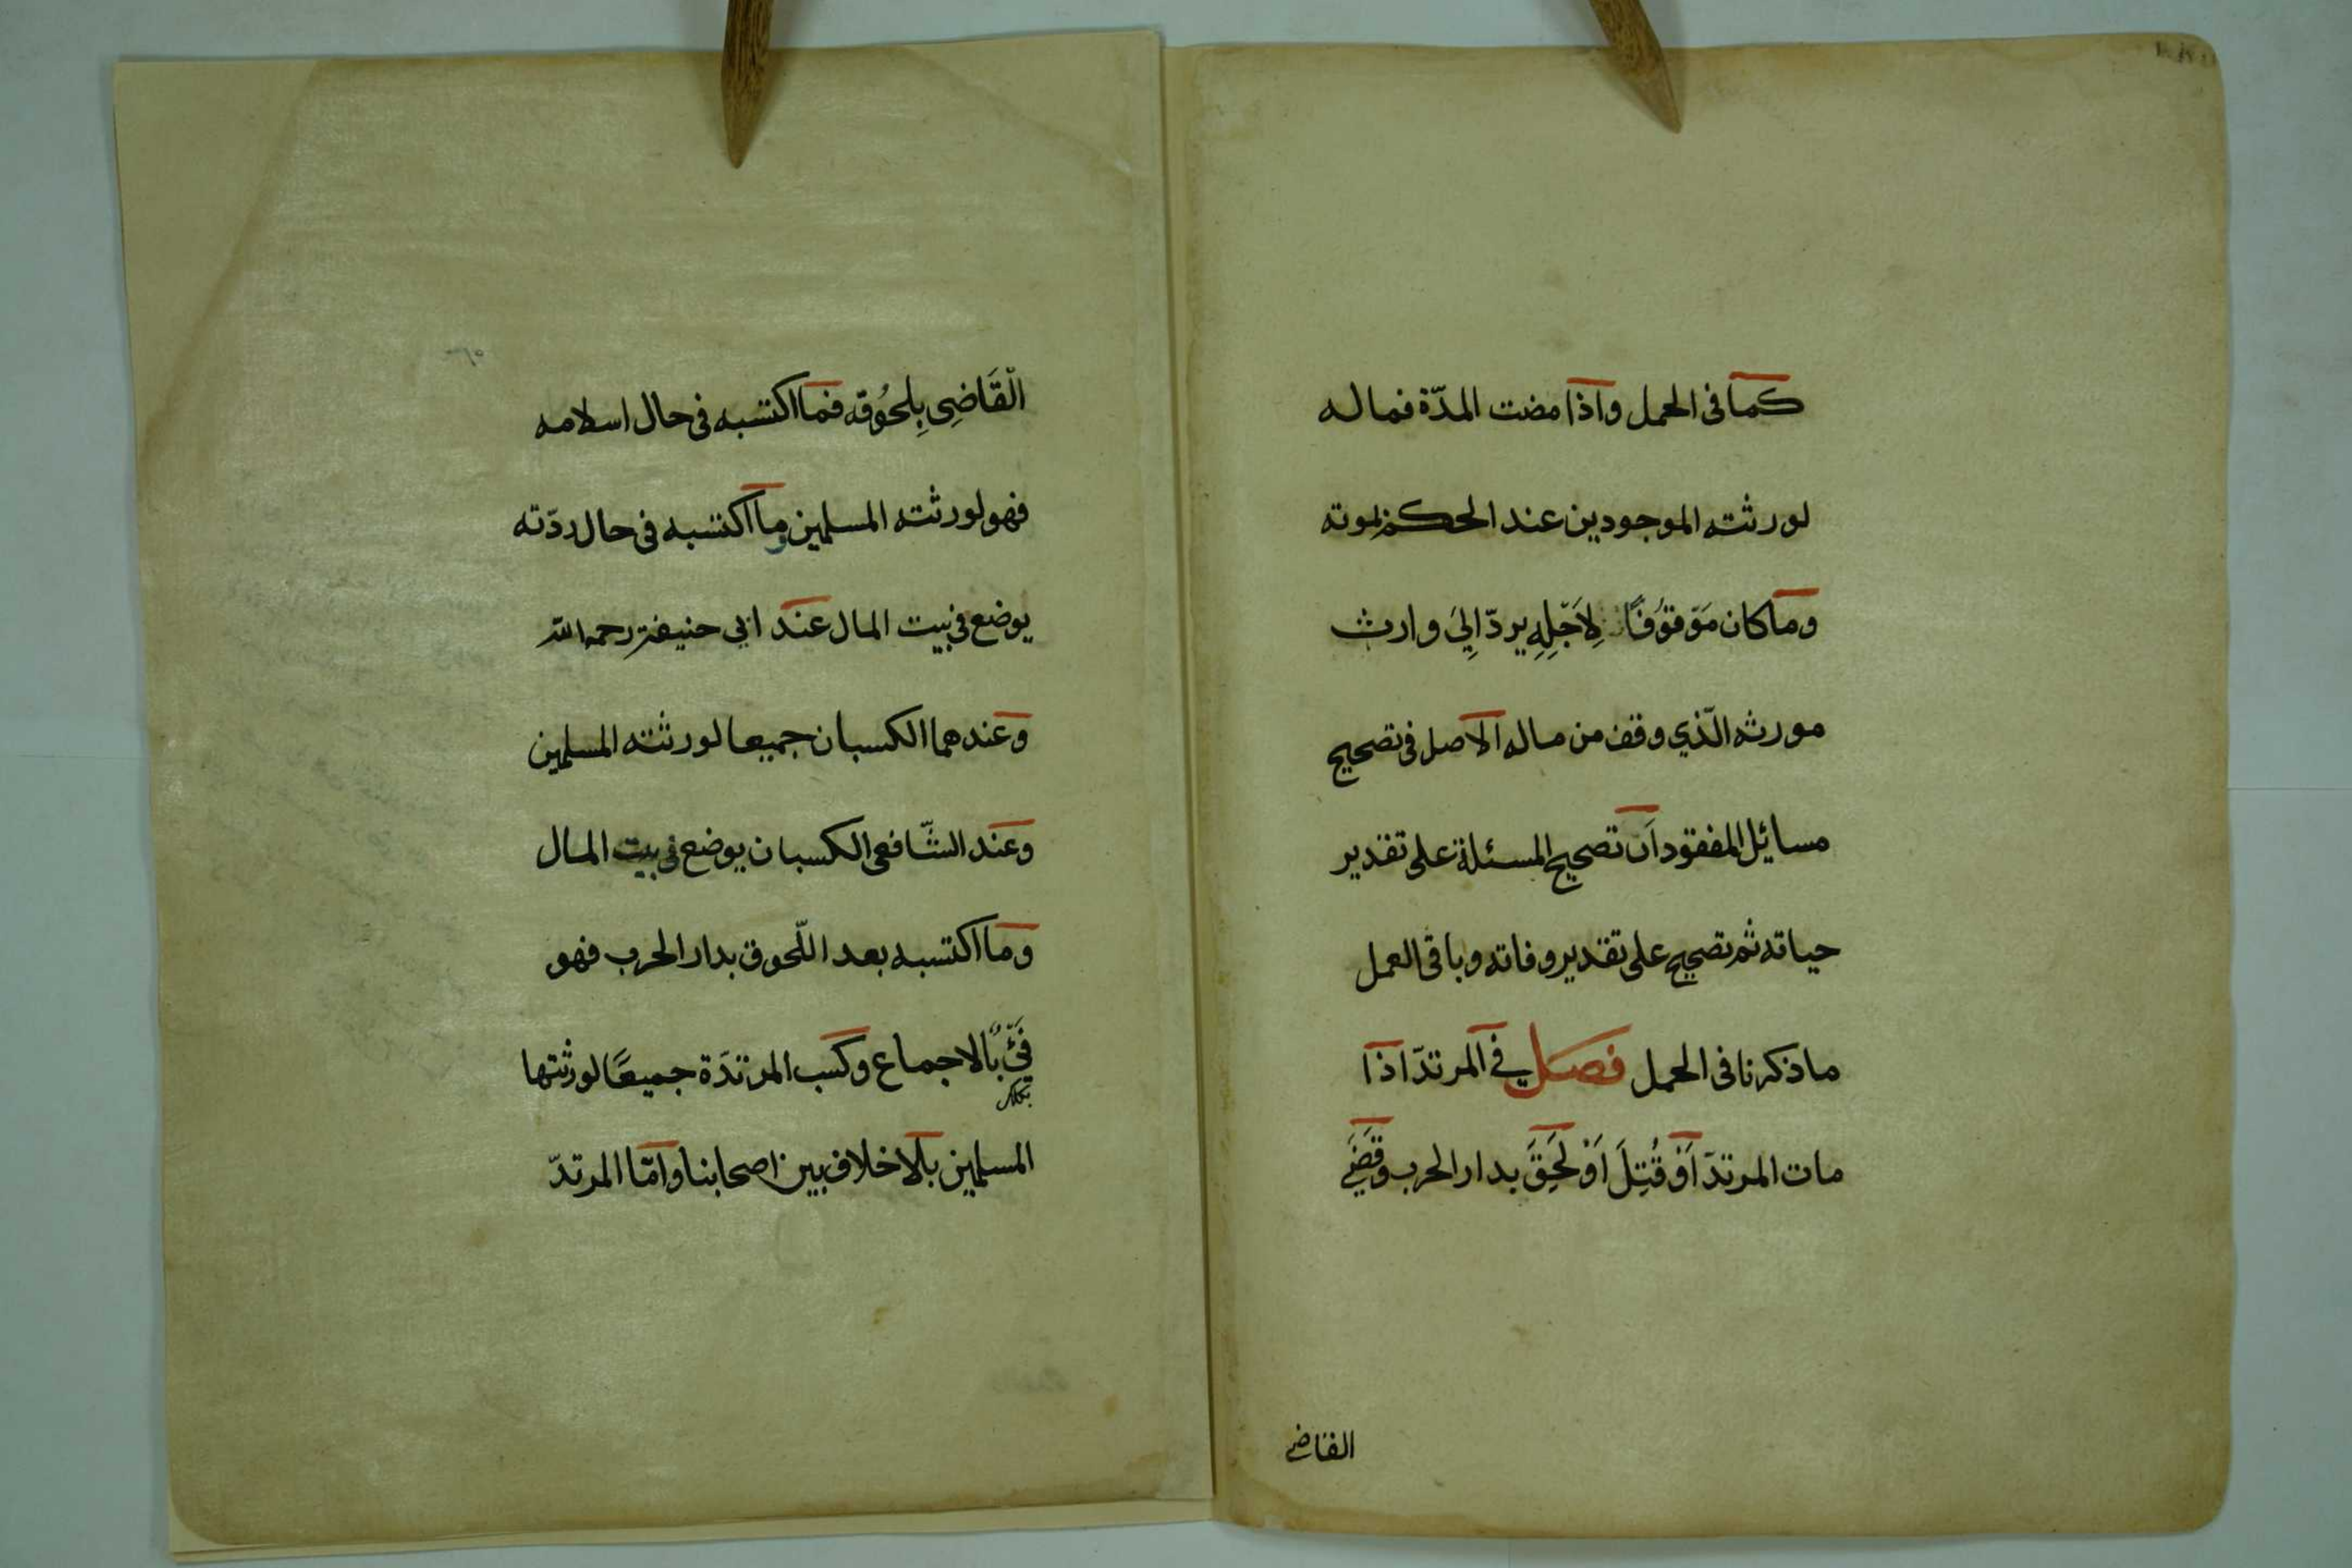 كما فى الحمل واذا مضت المدّة فماله
لورثته الموجودين عند الحكم بموته
وما كان مَوْقوُفًا لِاَجْلِهِ يردّ اِلىَ وارث
مورثه الّذي وقف من ماله الاصل فى تصحيح
مسائل المفقود اَن تصحيح المسئلة على تقدير
حياته ثم تصحيح على تقدير وفاته وباقى العمل
ماذكرنا فى الحمل فصل في المرتدّ اذا
مات المرتدّ اَوْ قُتِلَ اَوْ لَحِقَ بدار الحرب وقَضَي
القاضي
الْقَاضِى بِلحُوُقه فما اكتسبه فى حال اسلامه
فهو لورثته المسلمين وما اكتسبه فى حال ردّته
يوضع فى بيت المال عند ابي حنيفة رحمه الله
وعندهما الكسبان جميعا لورثته المسلمين
وعند الشّافعى الكسبان يوضع فى بيت المال
وما اكتسبه بعد اللّحوق بدار الحرب فهو
فَيْءٌ بالاجماع وكسب المرتدّة جميعًا لورثتها
المسلمين بلا خلاف بين اصحابنا وامّا المرتدّ